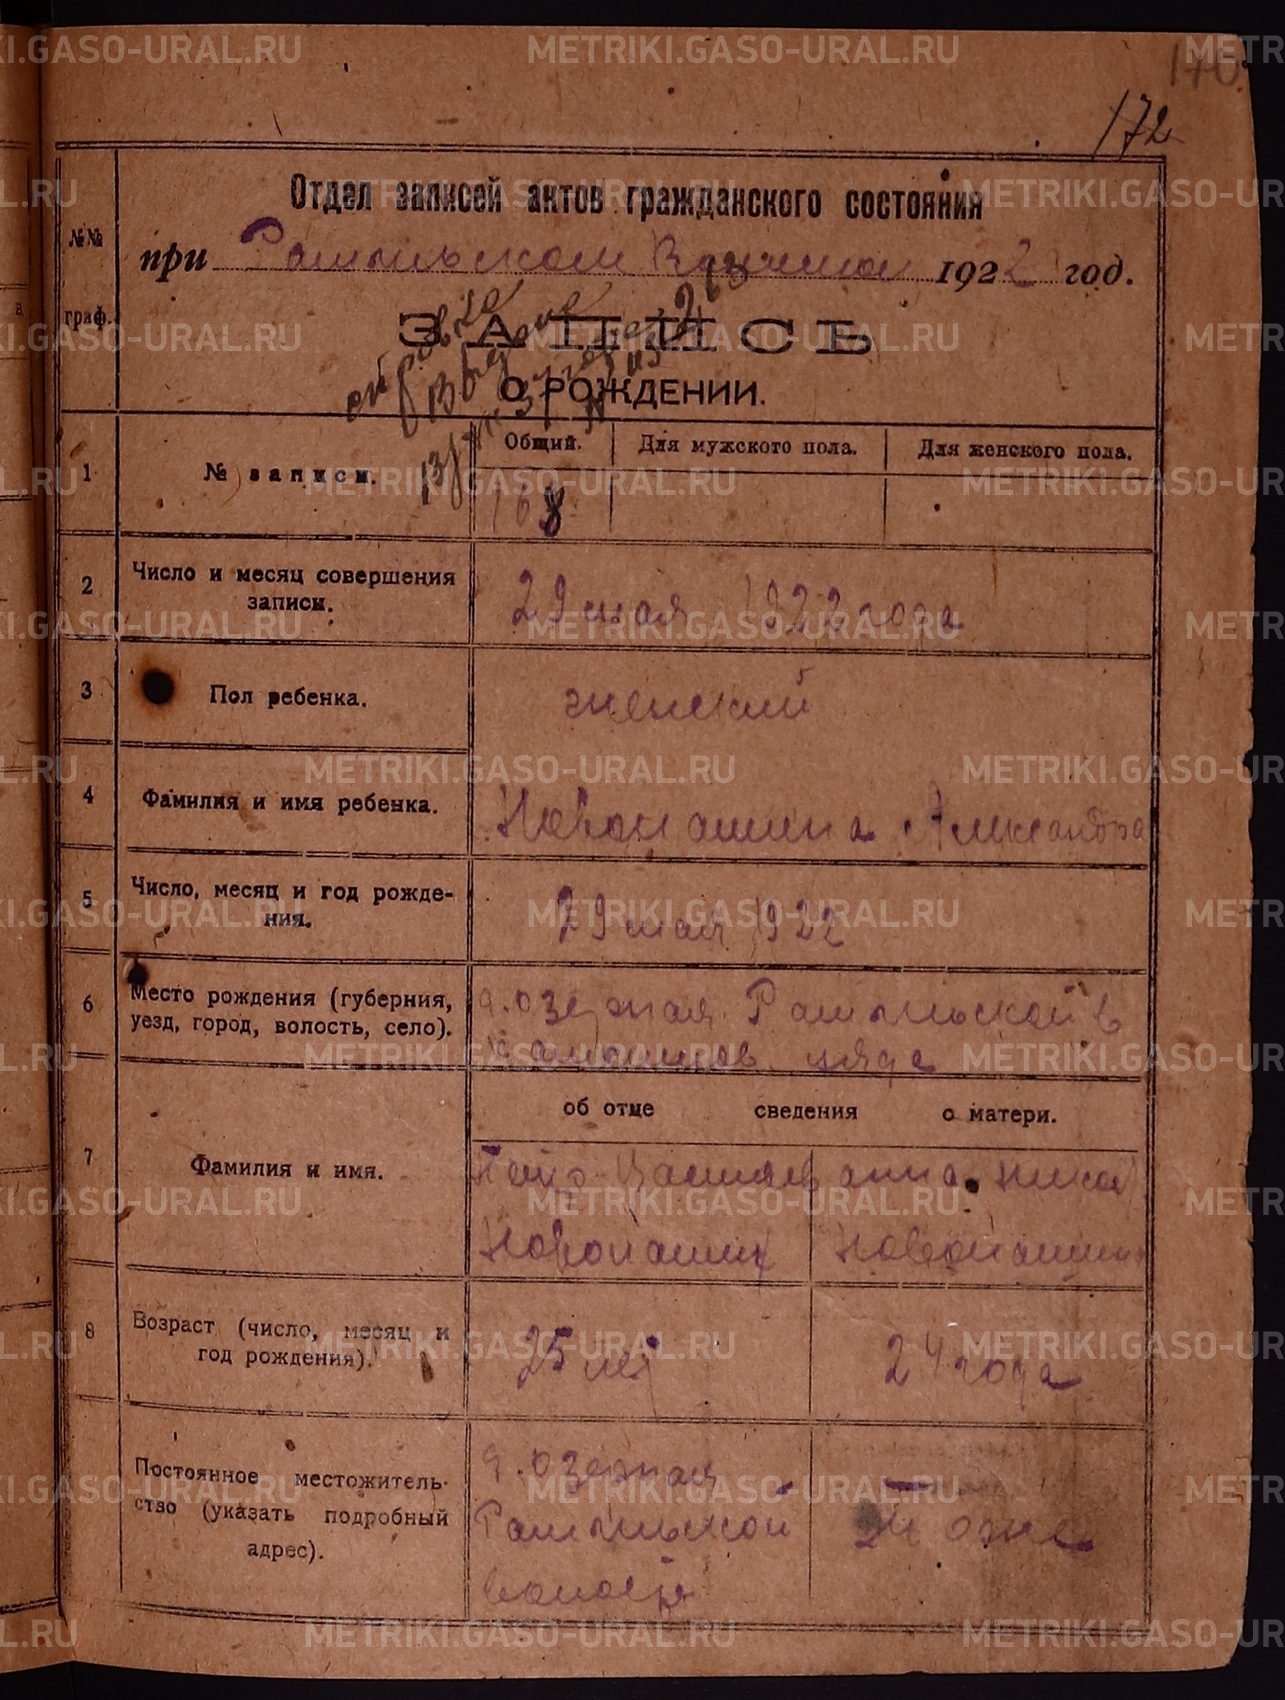 170
172
Отдел записей актов гражданского состояния
№№ граф.
при Рамыльском Волисполк 1922 год.
ЗАПИСЬ
О РОЖДЕНИИ.
Общий. Для мужского пола. Для женского пола.
1 № записи.
168
2 Число и месяц совершения
записи.
29 мая 1922 года
3 Пол ребенка.
женский
4 Фамилия и имя ребенка.
Новопашина Александра
5 Число, месяц и год рожде-
ния.
29 мая 1922
6 Место рождения (губерния,
уезд, город, волость, село).
д. Озерная
уезда
об отце сведения о матери.
7 Фамилия и имя.
Петр Васильев
Новопашин
Анна
Новопашина
8 Возраст (число, месяц и
год рождения).
25 лет
24 года
Постоянное местожитель-
ство (указать подробный
адрес).
д. Озерная
волости
То же
METRIKI.GASO-URAL.RU